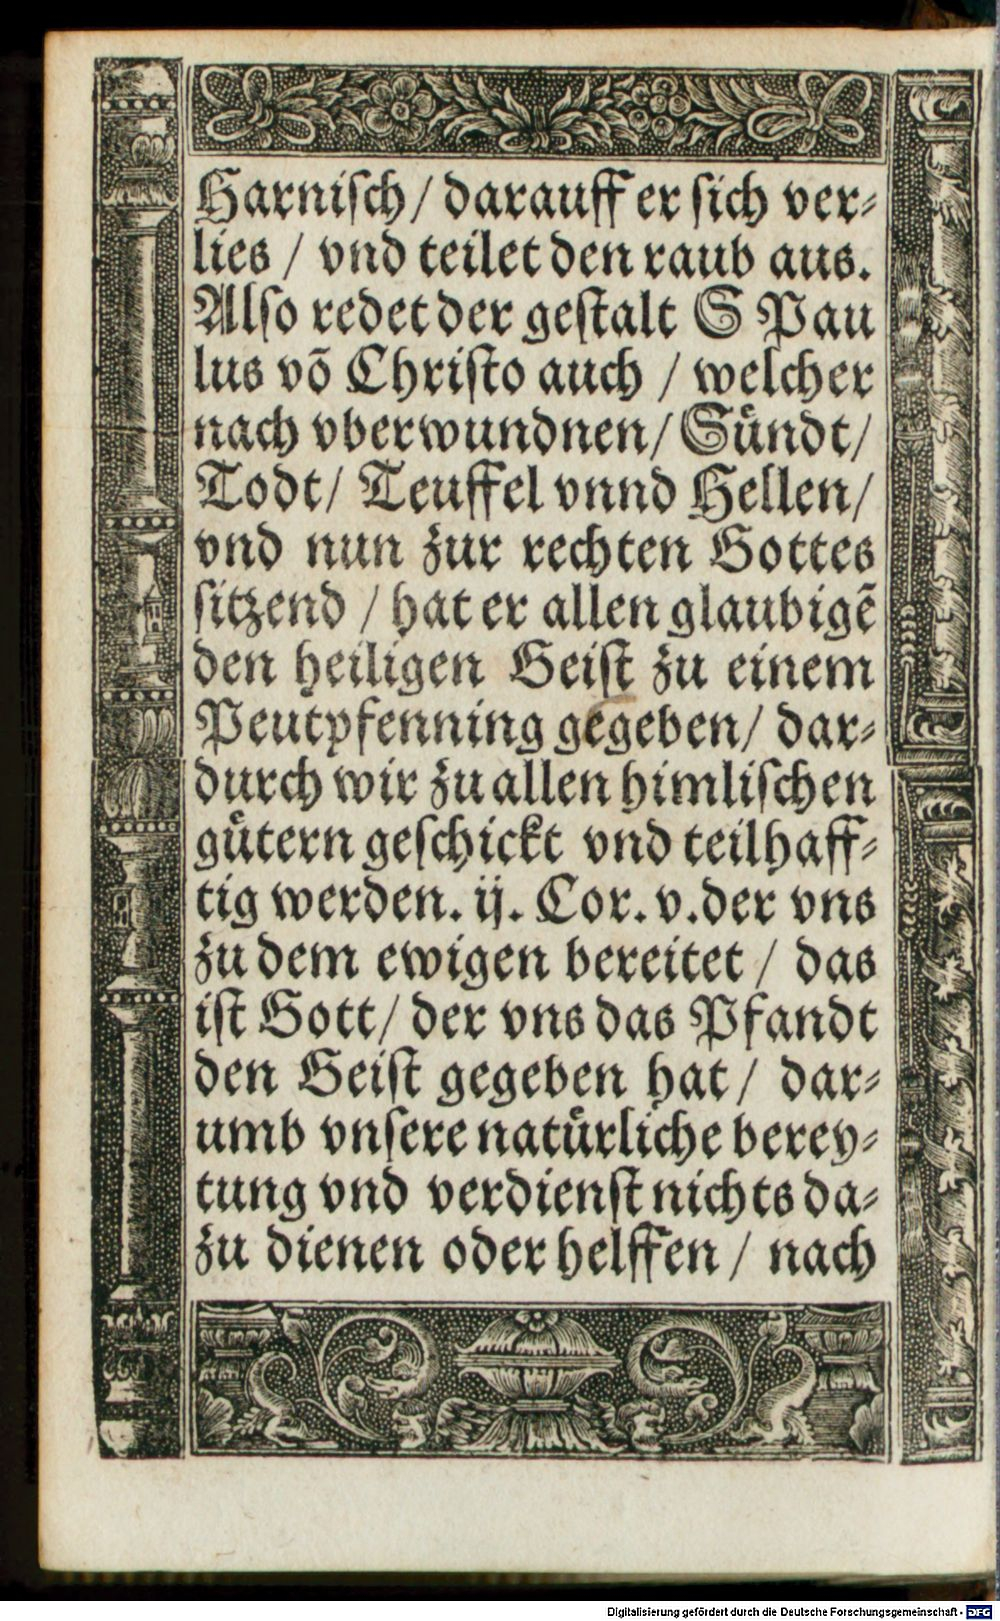 Harniſch / darauff er ſich ver⸗
lies / vnd teilet den raub aus.
Alſo redet der geſtalt S Pau
lus võ Chriſto auch / welcher
nach vberwundnen / Sündt /
Todt / Teuffel vnnd Hellen /
vnd nun zur rechten Gottes
ſitzend / hat er allen glaubigẽ
den heiligen Geiſt zu einem
Peutpfenning gegeben / dar⸗
durch wir zu allen himliſchen
gütern geſchickt vnd teilhaff⸗
tig werden. ij. Cor. v. der vns
zu dem ewigen bereitet / das
iſt Gott / der vns das Pfandt
den Geiſt gegeben hat / dar⸗
umb vnſere natürliche berey⸗
tung vnd verdienſt nichts da⸗
zu dienen oder helffen / nach
Digitalisierung gefördert durch die Deutsche Forschungsgemeinschaft - DFG